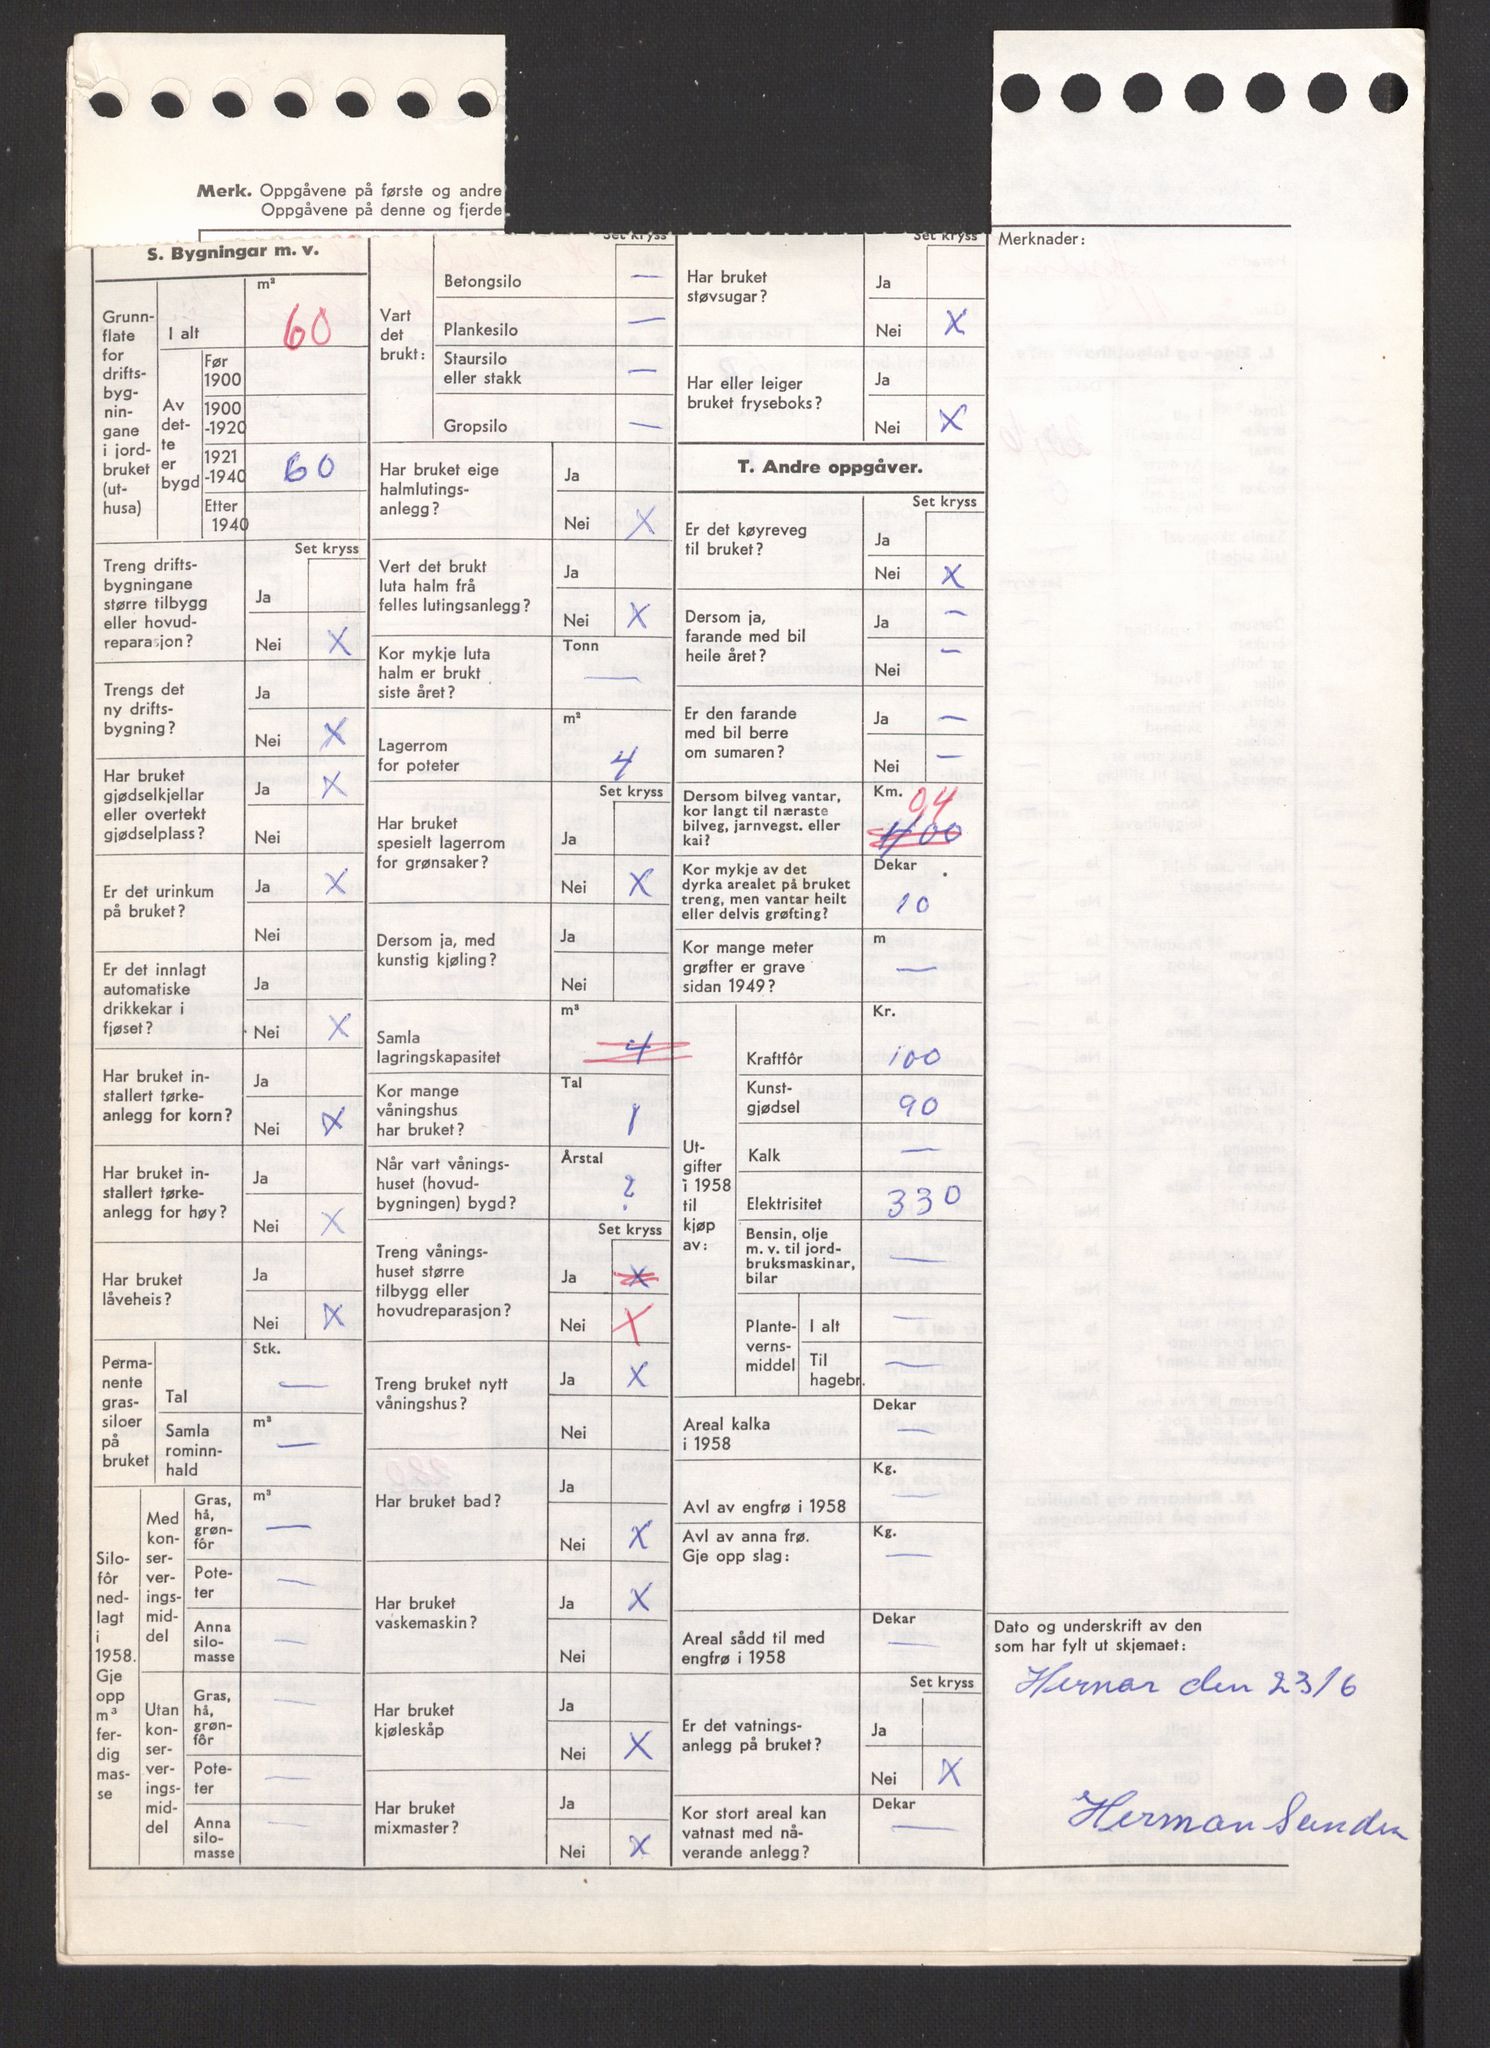 Merk. Oppgåvene på første og andre
Oppgåvene på denne og fjerde
S. Bygningar m. v.
Grunn-
flate
for
drifts-
byg-
nin-
gane
i jord-
bruket
(ut-
husa)
m²
I alt
60
Av
det-
te
er
bygd
Før
1900
1900
-1920
1921
-1940
60
Etter
1940
Set kryss
Treng drifts-
bygningane
større tilbygg
eller hovud-
reparasjon?
Ja
Nei X
Trengs det
ny drifts-
bygning?
Ja
Nei X
Har bruket
gjødselkjellar
eller overtekt
gjødselplass?
Ja X
Nei
Er det urinkum
på bruket?
Ja X
Nei
Er det innlagt
automatiske
drikkekar i
fjøset?
Ja
Nei X
Har bruket in-
stallert tørke-
anlegg for korn?
Ja
Nei X
Har bruket in-
stallert tørke-
anlegg for høy?
Ja
Nei X
Har bruket
låveheis?
Ja
Nei X
Perma-
nente
gras-
siloer
på
bruket
Stk.
Tal —
m³
Samla
rominn-
hald
—
Silo-
fôr
ned-
lagt
i
1958.
Gje
opp
m³
fer-
dig
mas-
se
Med
kon-
ser-
ver-
ings-
mid-
del
m³
Gras,
hå,
grøn-
fôr
—
Pote-
ter
—
Anna
silo-
masse
—
Utan
kon-
ser-
ver-
ings-
mid-
del
Gras,
hå,
grøn-
fôr
—
Pote-
ter
—
Anna
silo-
masse
—
Set kryss
Vart
det
brukt:
Betongsilo —
Plankesilo —
Staursilo
eller stakk
—
Gropsilo —
Har bruket eige
halmlutings-
anlegg?
Ja
Nei X
Vert det brukt
luta halm frå
felles lutingsanlegg?
Ja
Nei X
Kor mykje luta
halm er brukt
siste året?
Tonn
—
Lagerrom
for poteter
m²
4
Set kryss
Har bruket
spesielt lagerrom
for grønsaker?
Ja
Nei X
Dersom ja, med
kunstig kjøling?
Ja
Nei
Samla
lagringskapasitet
m³
4
Kor mange
våningshus
har bruket?
Tal
1
Når vart vånings-
huset (hovud-
bygningen) bygd?
Årstal
?
Set kryss
Treng vånings-
huset større
tilbygg eller
hovudreparasjon?
Ja X
Nei X
Treng bruket nytt
våningshus?
Ja X
Nei
Har bruket bad?
Ja
Nei X
Har bruket
vaskemaskin?
Ja X
Nei
Har bruket
kjøleskåp
Ja
Nei X
Har bruket
mixmaster?
Ja
Nei X
Set kryss
Har bruket
støvsugar?
Ja
Nei X
Har eller leiger
bruket fryseboks?
Ja
Nei X
T. Andre oppgåver.
Set kryss
Er det køyreveg
til bruket?
Ja
Nei X
Dersom ja,
farande med bil
heile året?
Ja —
Nei —
Er den farande
med bil berre
om sumaren?
Ja —
Nei —
Dersom bilveg vantar,
kor langt til næraste
bilveg, jarnvegst. eller
kai?
Km.
0,4
400
Kor mykje av det
dyrka arealet på bruket
treng, men vantar heilt
eller delvis grøfting?
Dekar
10
Kor mange meter
grøfter er grave
sidan 1949?
m
—
Ut-
gifter
i 1958
til
kjøp
av:
Kr.
Kraftfôr 100
Kunst-
gjødsel
90
Kalk —
Elektrisitet 330
Bensin, olje
m. v. til jord-
bruksmaskinar,
bilar
—
Plante-
verns-
middel
I alt —
Til
hagebr.
—
Areal kalka
i 1958
Dekar
—
Avl av engfrø i 1958
Kg.
—
Avl av anna frø.
Gje opp slag:
Kg.
—
Areal sådd til med
engfrø i 1958
Dekar
—
Set kryss
Er det vatnings-
anlegg på bruket?
Ja
Nei X
Kor stort areal kan
vatnast med nå-
verande anlegg?
Dekar
—
Merknader:
Dato og underskrift av den
som har fylt ut skjemaet:
Hernar den 23/6
Herman